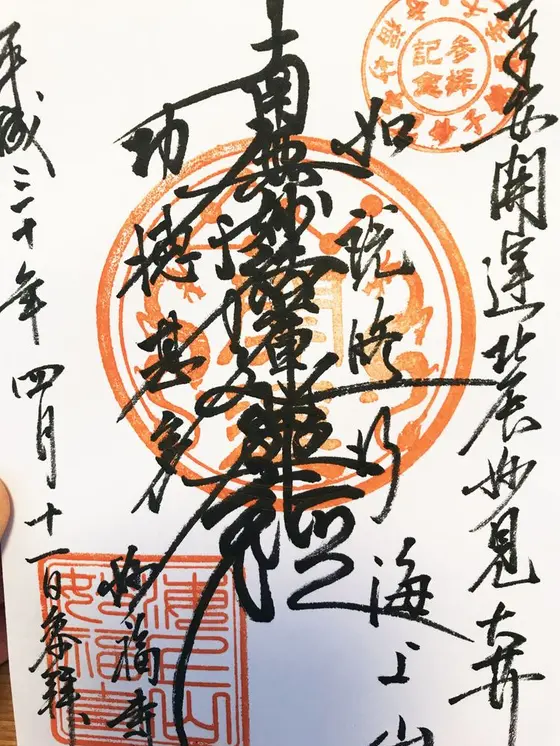 開運北辰妙見大𦬇
参拝
記念
如説修行
海上山
南無妙法蓮華経
功徳甚多
妙福寺
平成三十年四月十一日奉拝